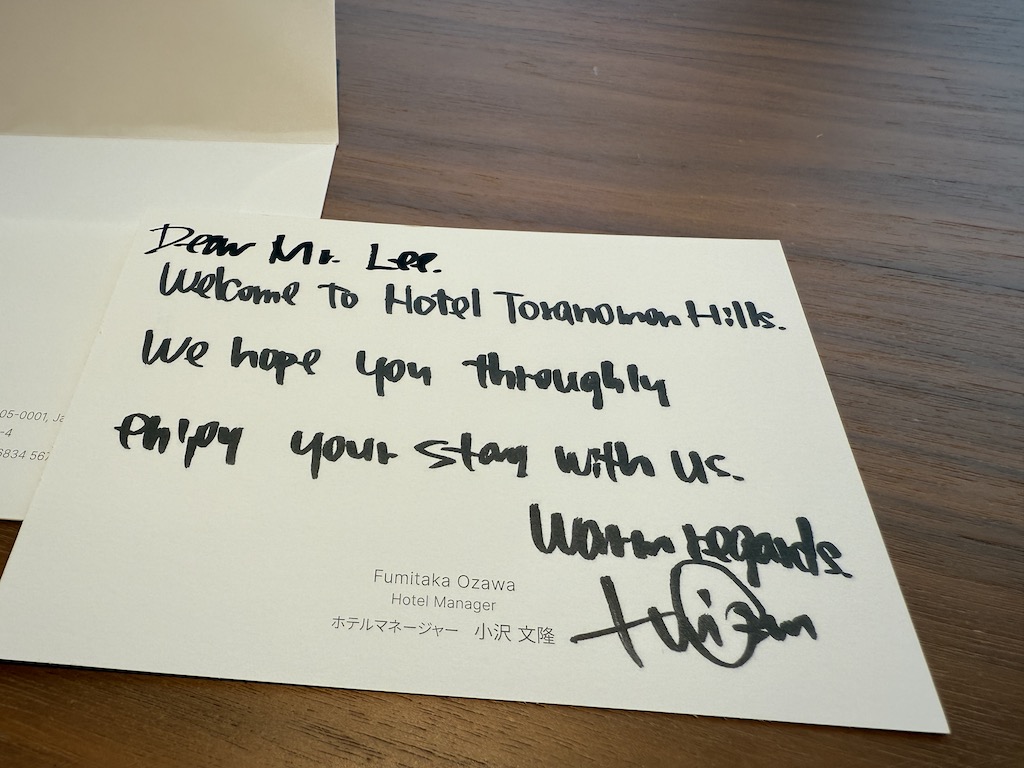 05-0001, Ja
-4
6834 567
Dear Mr. Lee.
Welcome to Hotel Toranomon Hills.
We hope you throughly
enjoy your stay with us.
Warm regards.
Fumitaka Ozawa
Hotel Manager
ホテルマネージャー 小沢 文隆